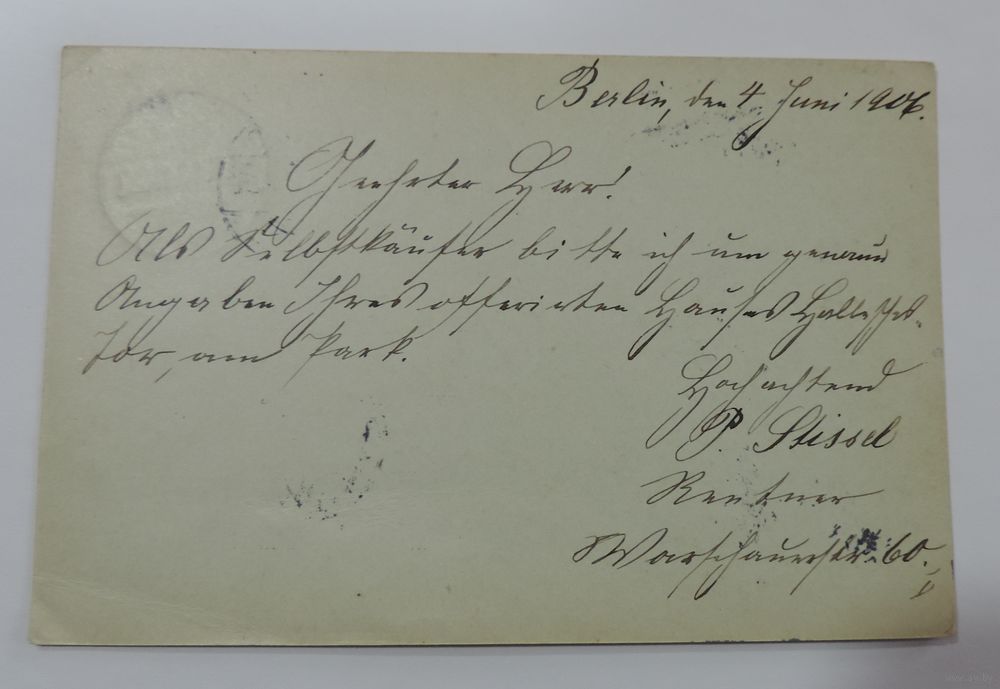 Berlin, den 4 Juni 1906.
Geehrter Herr!
Als Selbstkäufer bitte ich um genaue
Angaben Ihres offerirten Hauses Hallesches-
Tor, am Park.
Hochachtend
P. Stissel
Rentner
Warschauerstr. 60.